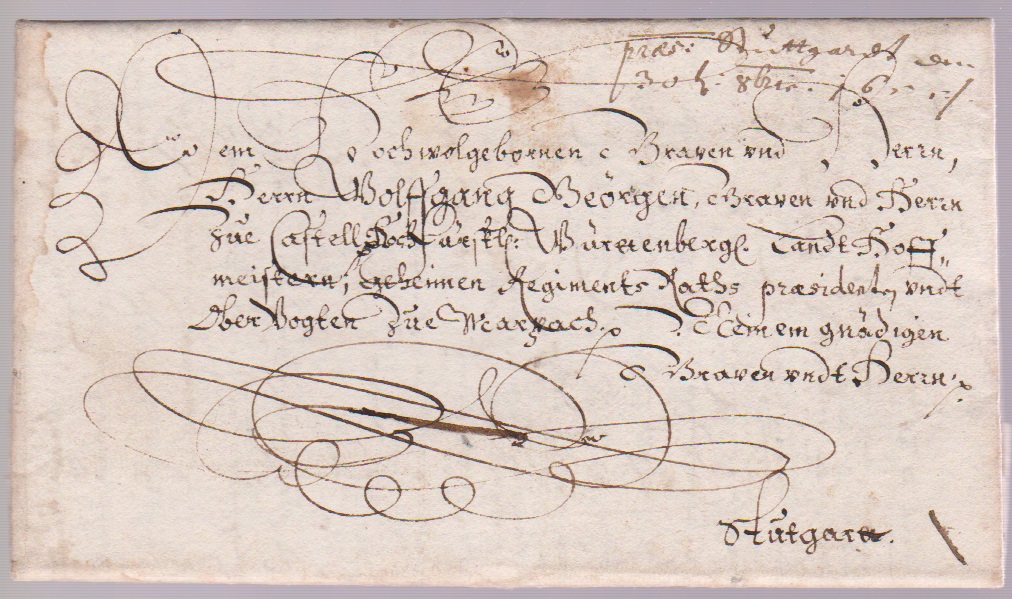 præs: Stuttgardt den
30 t. 8bris.
Dem Hochwolgebornen Graven vnd Herrn,
Herrn Wolffgang Geörgen, Graven vnd Herrn
zue Castell Hochfürstl: Würtenbergl. Landt Hoff„
meistern, geheimen Regiments Raths præsidenten vndt
Ober Vogten zue Marpach. Meinem gnädigen
Graven vndt Herrn.
Stutgart.